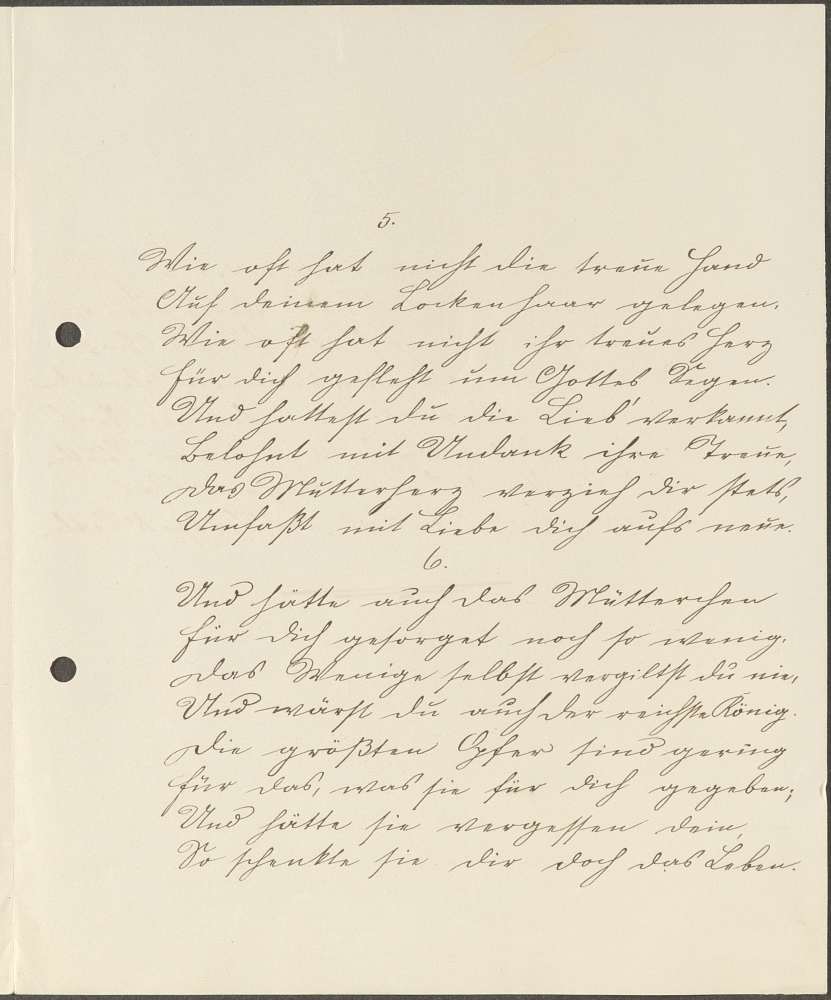 5.
Wie oft hat nicht die treue Hand
Auf deinem Lockenhaar gelegen.
Wie oft hat nicht ihr treues Herz
Für dich gefleht um Gottes Segen.
Und hattest du die Lieb' verkannt,
Belohnt mit Undank ihre Treue,
Das Mutterherz verzieh dir stets,
Umfaßt mit Liebe dich aufs neue.
6.
Und hätte auch das Mütterchen
Für dich gesorget noch so wenig.
Das Wenige selbst vergiltst du nie,
Und wärst du auch der reichste König.
Die größten Opfer sind gering
Für das, was sie für dich gegeben;
Und hätte sie vergessen dein,
So schenkte sie dir doch das Leben.